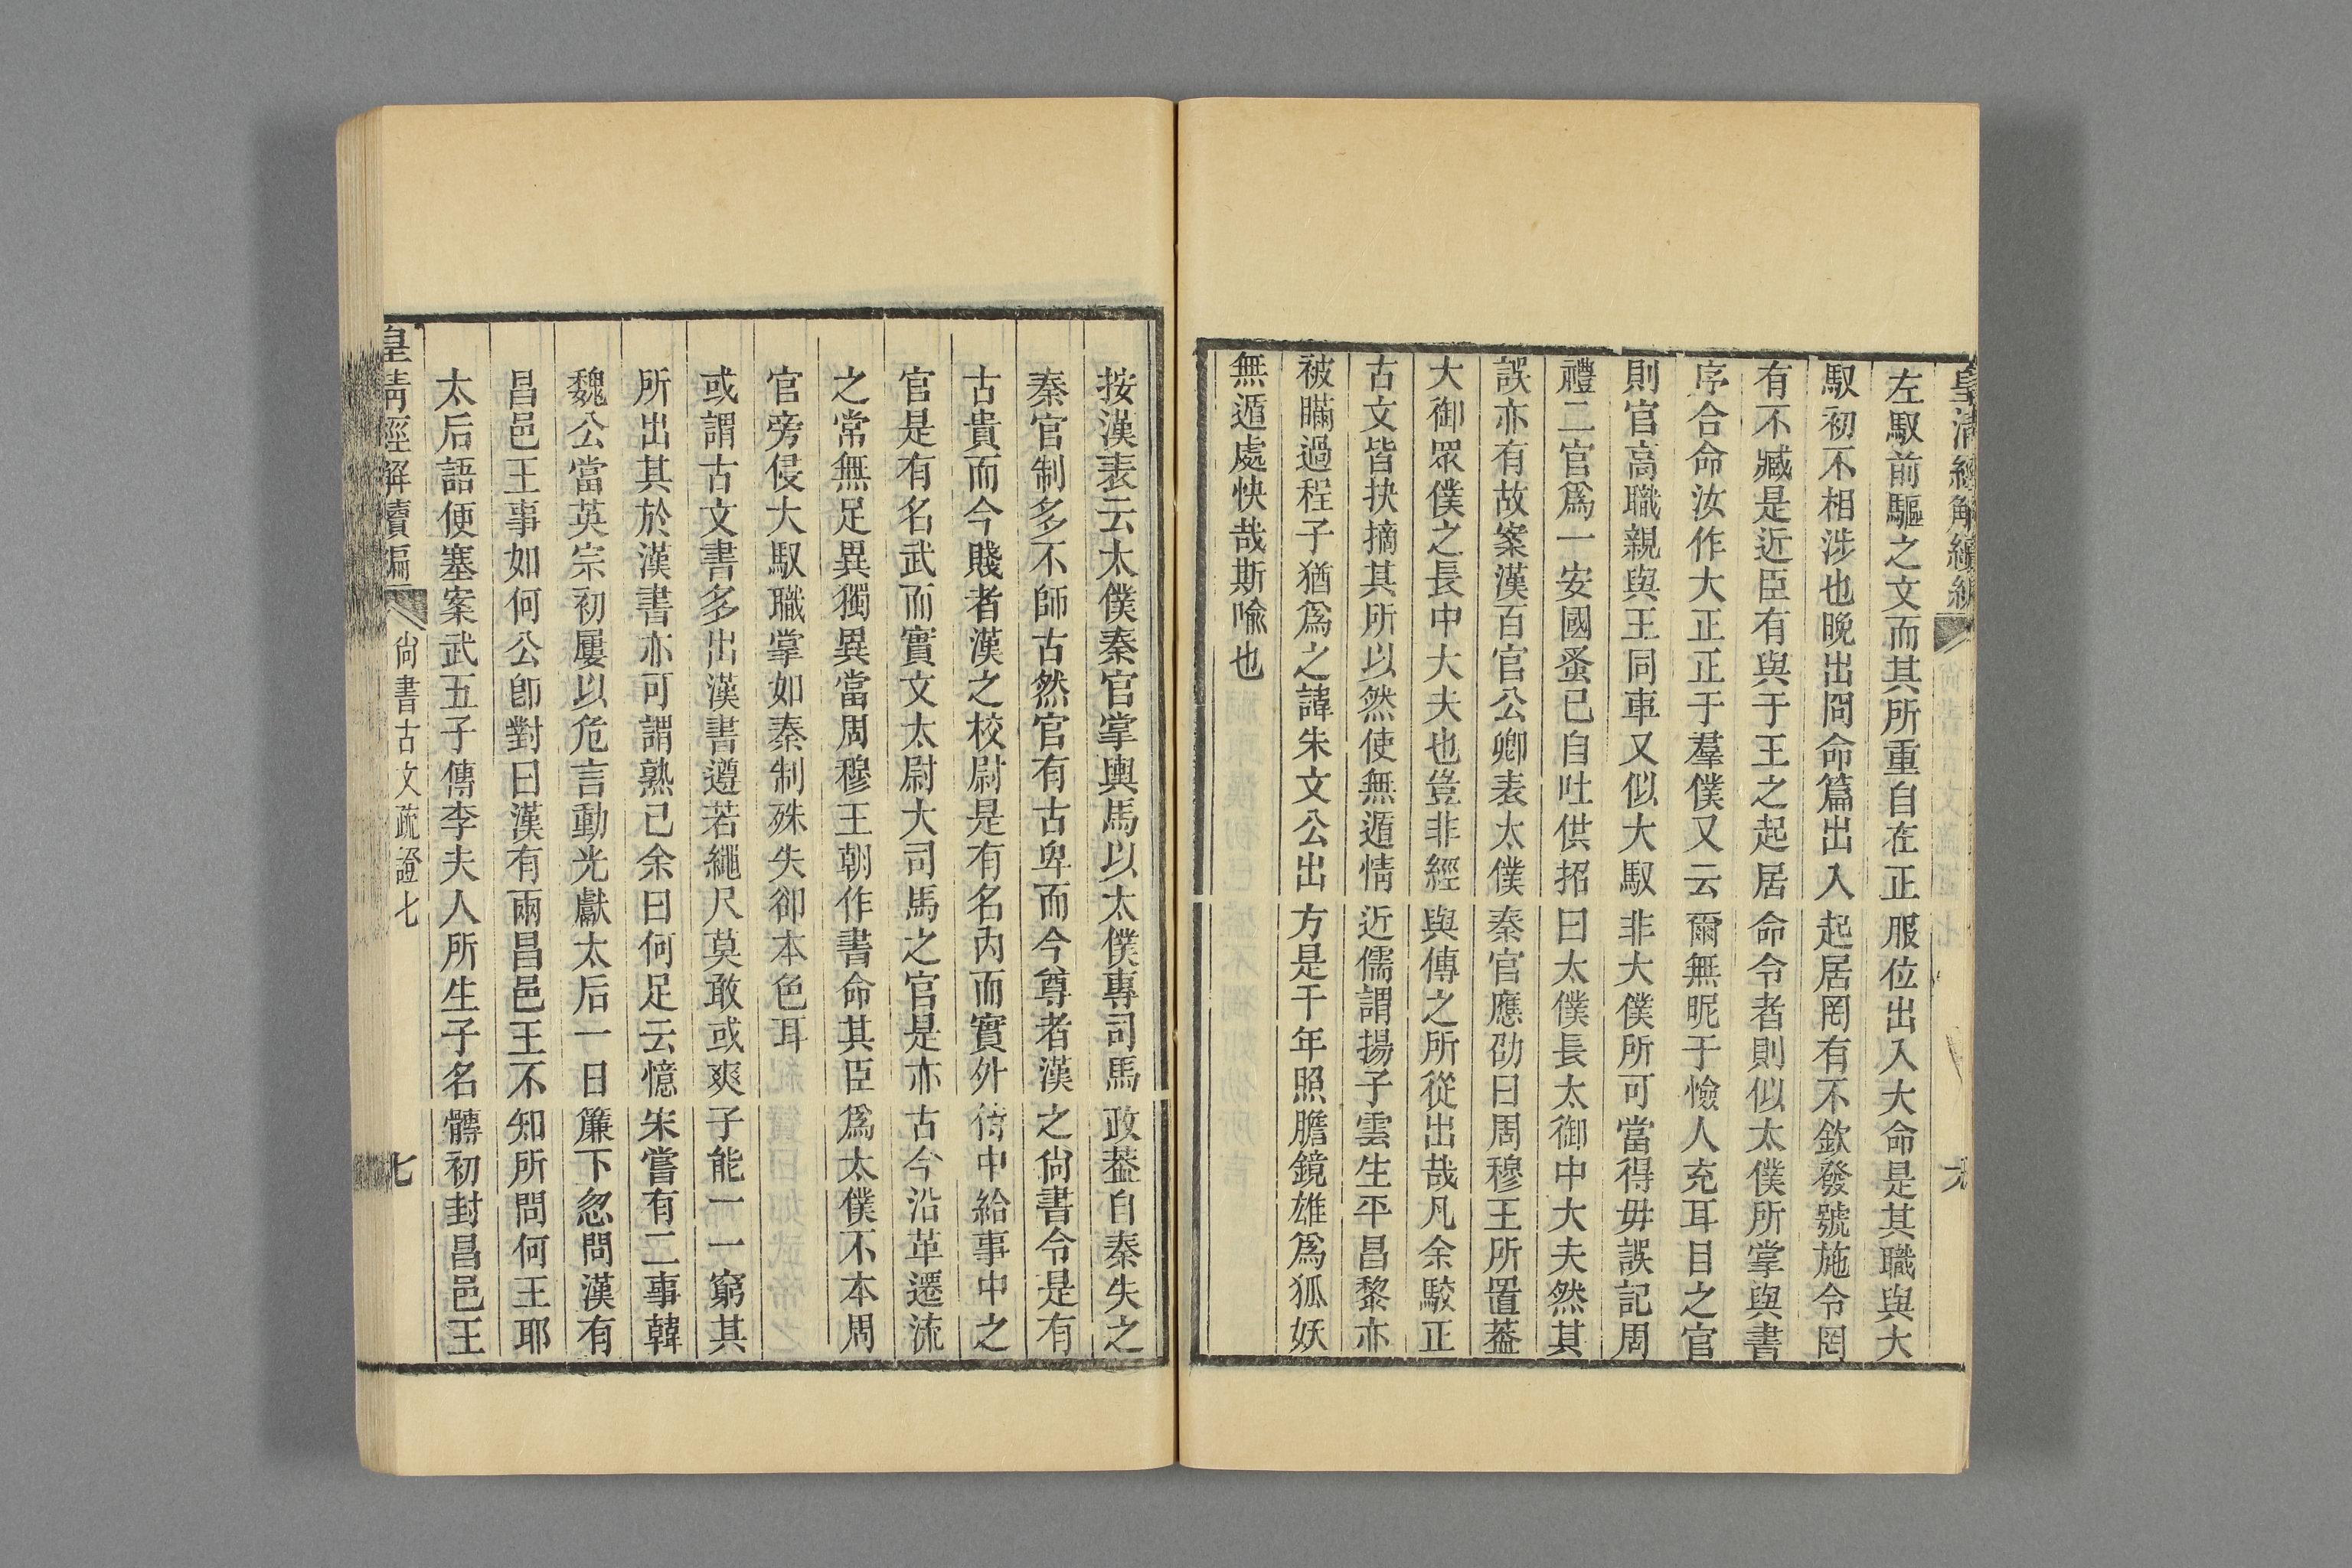 左馭前驅之文而其所重自在正服位出入大命是其職與大
馭初不相涉也晚出冏命篇出入起居罔有不欽發號施令罔
有不臧是近臣有與于王之起居命令者則似太僕所掌與書
序合命汝作大正正于羣僕又云爾無昵于憸人充耳目之官
則官高職親與王同車又似大馭非大僕所可當得毋誤記周
禮二官爲一安國蚤已自吐供招曰太僕長太御中大夫然其
誤亦有故案漢百官公卿表太僕秦官應劭曰周穆王所置葢
大御眾僕之長中大夫也豈非經與傳之所從出哉凡余駮正
古文皆抉摘其所以然使無遁情近儒謂揚子雲生平昌黎亦
被瞞過程子猶爲之諱朱文公出方是千年照膽鏡雄爲狐妖
無遁處快哉斯喩也
按漢表云太僕秦官掌輿馬以太僕專司馬政葢自秦失之
秦官制多不師古然官有古卑而今尊者漢之尙書令是有
古貴而今賤者漢之校尉是有名內而實外侍中給事中之
官是有名武而實文太尉大司馬之官是亦古今沿革遷流
之常無足異獨異當周穆王朝作書命其臣爲太僕不本周
官旁侵大馭職掌如秦制殊失卻本色耳
或謂古文書多出漢書遵若繩尺莫敢或爽子能一一窮其
所出其於漢書亦可謂熟已余曰何足云憶朱嘗有二事韓
魏公當英宗初屢以危言動光獻太后一日簾下忽問漢有
昌邑王事如何公卽對曰漢有兩昌邑王不知所問何王耶
太后語便塞案武五子傳李夫人所生子名髆初封昌邑王
皇清經解續編
尙書古文疏證七
七